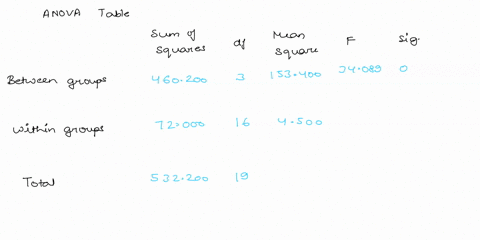 ANOVA Table
Sum of Squares df Mean Square F Sig.
Between groups 460.200 3 153.400 34.089 0
Within groups 72.000 16 4.500
Total 532.200 19